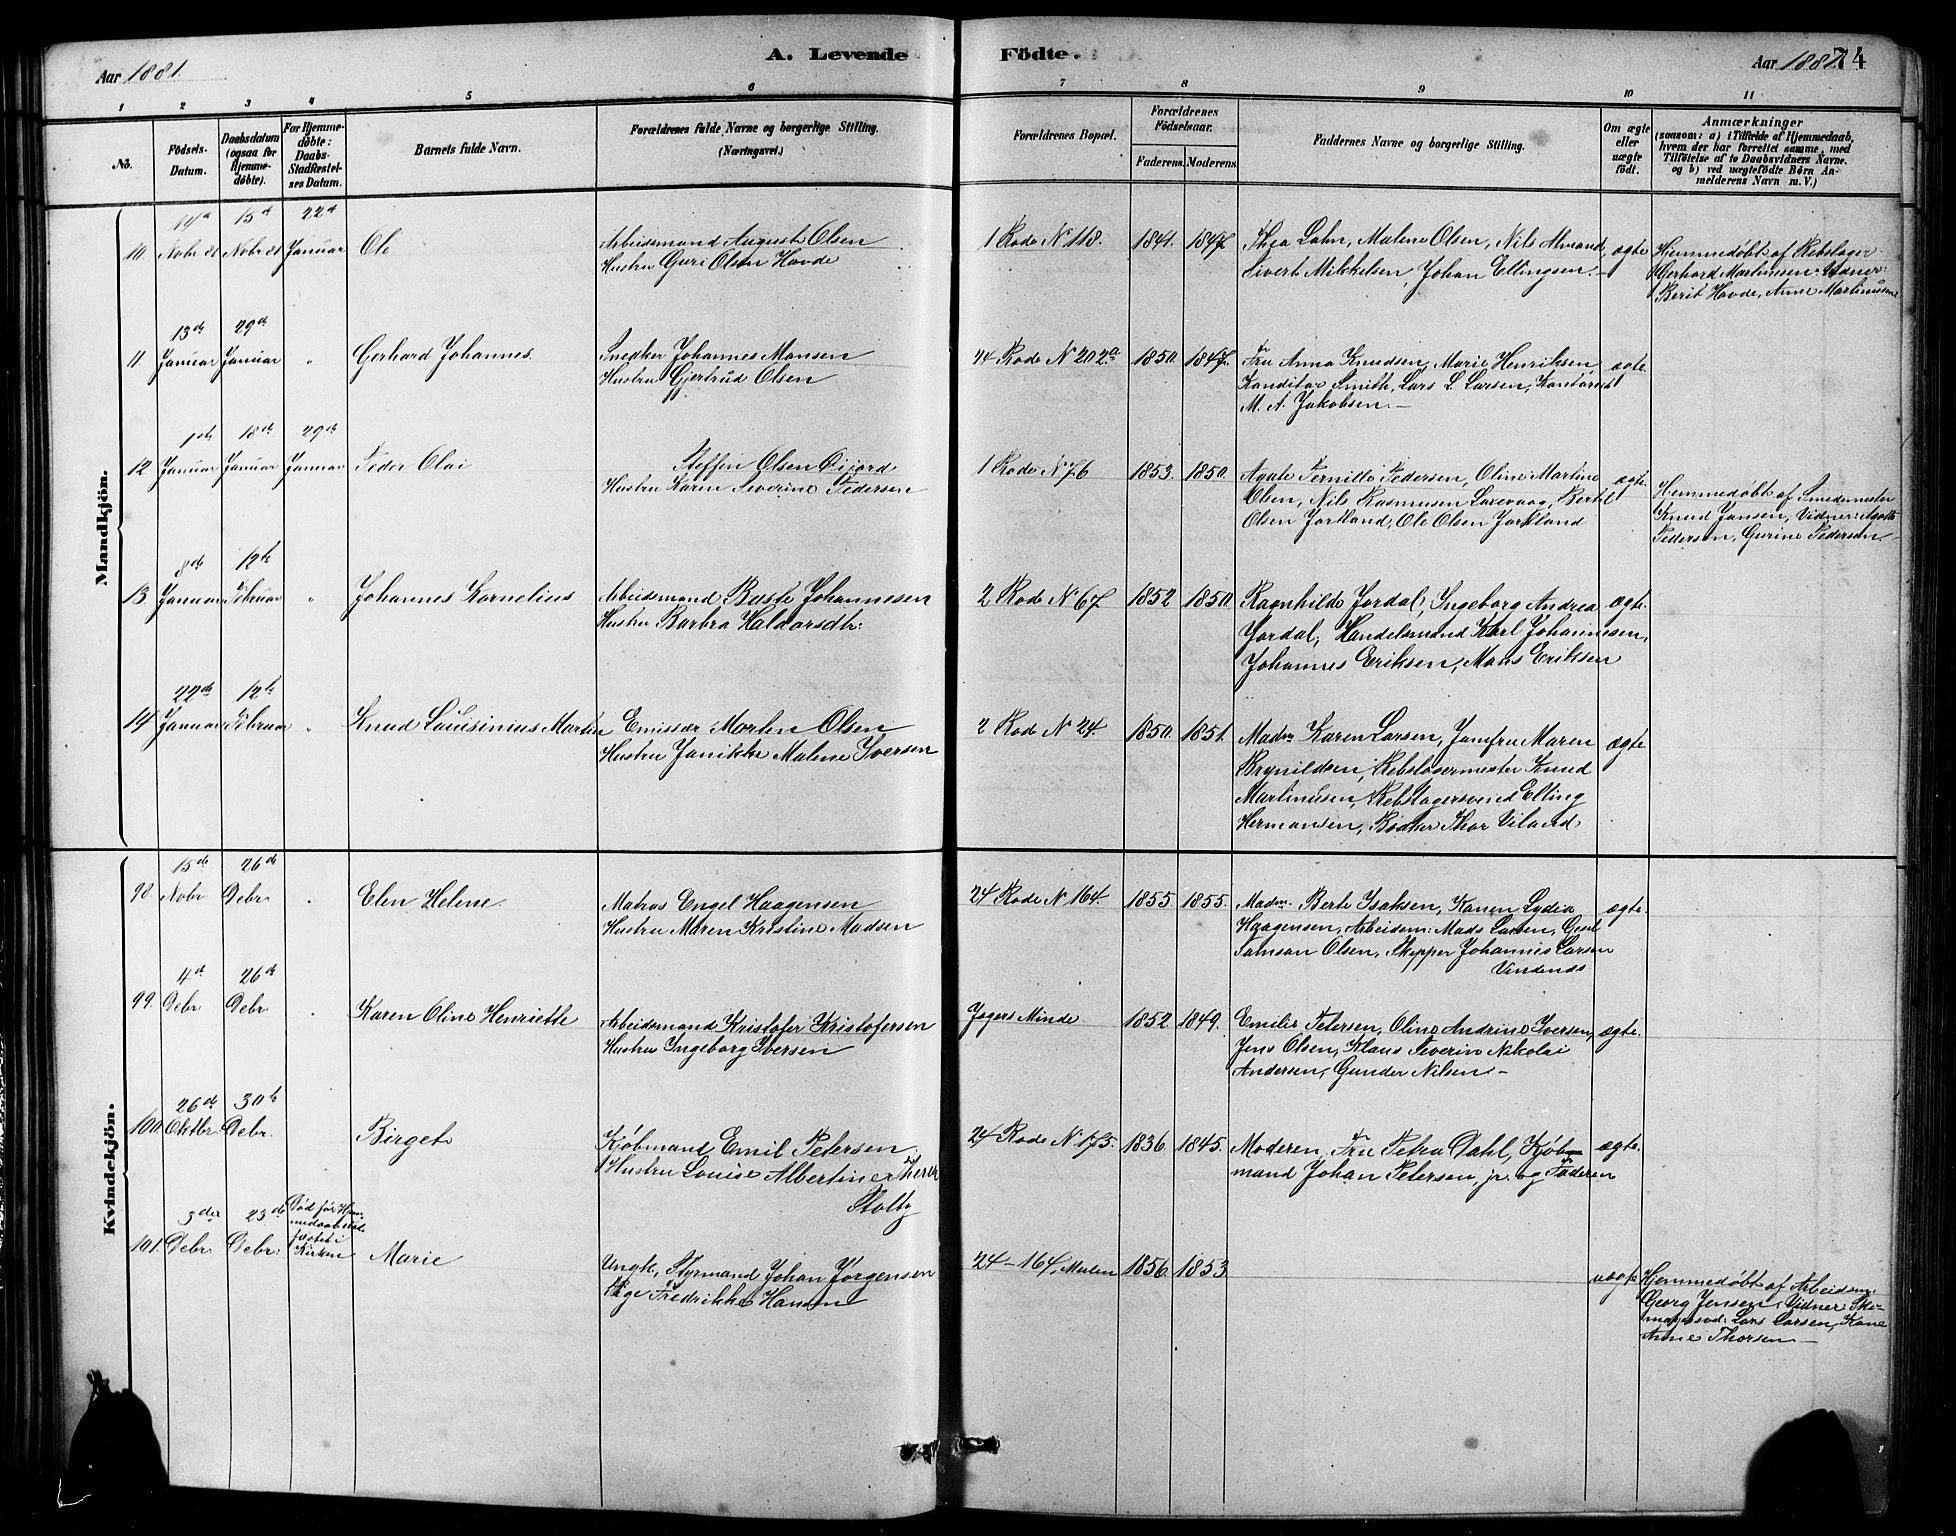 Aar 1881.
A. Levende
Födte.
Aar 1881.
74
1
2
3
4
5
6
7
8
9
10
11
No.
Födsels-
Datum.
Daabsdatum
(ogsaa for
Hjemme-
døbte).
For Hjemme-
døbte:
Daabs-
Stadfæstel-
ses Datum.
Barnets fulde Navn.
Forældrenes fulde Navne og borgerlige Stilling.
(Næringsvei.)
Forældrenes Bopæl.
Forældrenes
Födselsaar.
Faderens.
Moderens.
Faddernes Navne og borgerlige Stilling.
Om ægte
eller
uægte
födt.
Anmærkninger
(saasom: a) i Tilfælde af Hjemmedaab,
hvem der har forrettet samme, med
Tilföielse af to Daabsvidners Navne.
og b) ved uægtefödte Börn An-
melderens Navn m. V.)
Mandkjön.
14d 15d 22d
10. Nobr 80 Nobr 80 Januar Ole Arbeidsmand August Olsen 1 Rode N 118. 1841. 1847. Thea Lahn, Malene Olsen, Nils Amand, ægte Hjemmedøbt af Rebslager
Hustru Guri Olsen Hovde Sivert Mikkelsen, Johan Ellingsen.- Gerhard Martinsen. Vidner:
Berit Hovde, Anne Martinusen
13de 29de
11. Januar Januar " Gerhard Johannes. Snedker Johannes Monsen 24 Rode N 202a 1850. 1847. Fru Anna Knudsen, Marie Henriksen ægte.
Hustru Gjertrud Olsen Konditor Smith, Lars L. Larsen, Kontorist
M. A. Jakobsen.-
1de 18de 29de
12 Januar Januar Januar Peder Olai Steffen Olsen 1 Rode N 76 1853. 1850. Agate Pernille Pedersen, Oline Martine ægte.
Hustru Karen Severine Pedersen Olsen, Nils Rasmusen Laxevaag, Bertel Hjemmedøbt af Smedemester
Olsen Jorkland, Ole Olsen Jorkland Knud Jansen, Vidner: Agate
Pedersen, Gurine Pedersen
8de 12te
13. Januar Februar " Johannes Kornelius Arbeidsmand Buste Johannesen 2 Rode N 67 1852 1850. Ragnhilde Jordal, Ingeborg Andrea ægte.
Hustru Barbra Haldorsdtr: Jordal, Handelsmand Karl Johannesen,
Johannes Eriksen, Mons Eriksen
22de 12te
14. Januar Februar " Knud Louisinius Martin Emissær Morten Olsen 2 Rode N 24. 1850. 1851. Madm Karen Larsen, Jomfru Maren ægte
Hustru Janikke Malene Iversen Brynildsen, Rebslagermester Knud
Martinusen, Rebslagersvend Elling
Hermansen, Bødker Thor
Kvindekjön.
15de 26de
98. Nobr. Debr. " Elen Helene. Matros Engel Haagensen 24 Rode N 164. 1855 1855. Madm. Berte Isaksen, Karen Lydia ægte.
Hustru Maren Kristine Madsen Haagensen, Arbeidsm: Mads Larsen,
Samson Olsen, Skipper Johannes Larsen
Vindenes
4de 26de
99. Debr. Debr. " Karen Oline Henriette Arbeidsmand Kristofer Kristofersen Jægers Minde 1852 1849. Emilie Petersen, Oline Andrine Iversen, ægte.
Hustru Ingeborg Iversen Jens Olsen, Klaus Severin Nikolai
Andersen, Gunder Nilsen.-
26de 30te
100. Oktbr. Debr. Birget Kjøbmand Emil Petersen 24 Rode N 175. 1836. 1845. Moderen, Fru Petra Dahl, Kjøb- ægte.
Hustru Louise Albertine mand Johan Petersen, jr. og Faderen
Stoltz
3die 23de Død før Hjem-
medaab stad-
fæstet i
Kirken
101. Debr. Debr. Marie Ungk, Styrmand Johan Jørgensen 24 - 164, Mulen 1856. 1853. uægte Hjemmedøbt af Arbeidsm:
Pige Fredrikke Hansen Georg Jensen. Vidner: Sko-
magersvd: Lars Larsen, Kone
Anne Thorsen